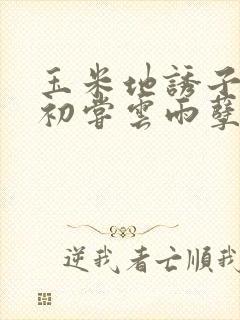 玉米地誘子
初嘗雲雨孽
逆我者亡順我